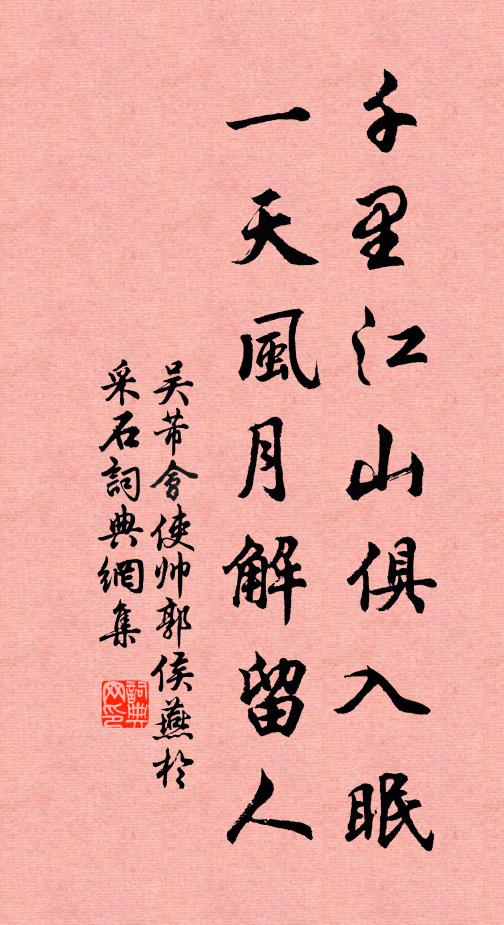 千里江山俱入眠
一天風月解留人
吴芾會使帅郭侯燕於
采石詞典網集
詞典网印